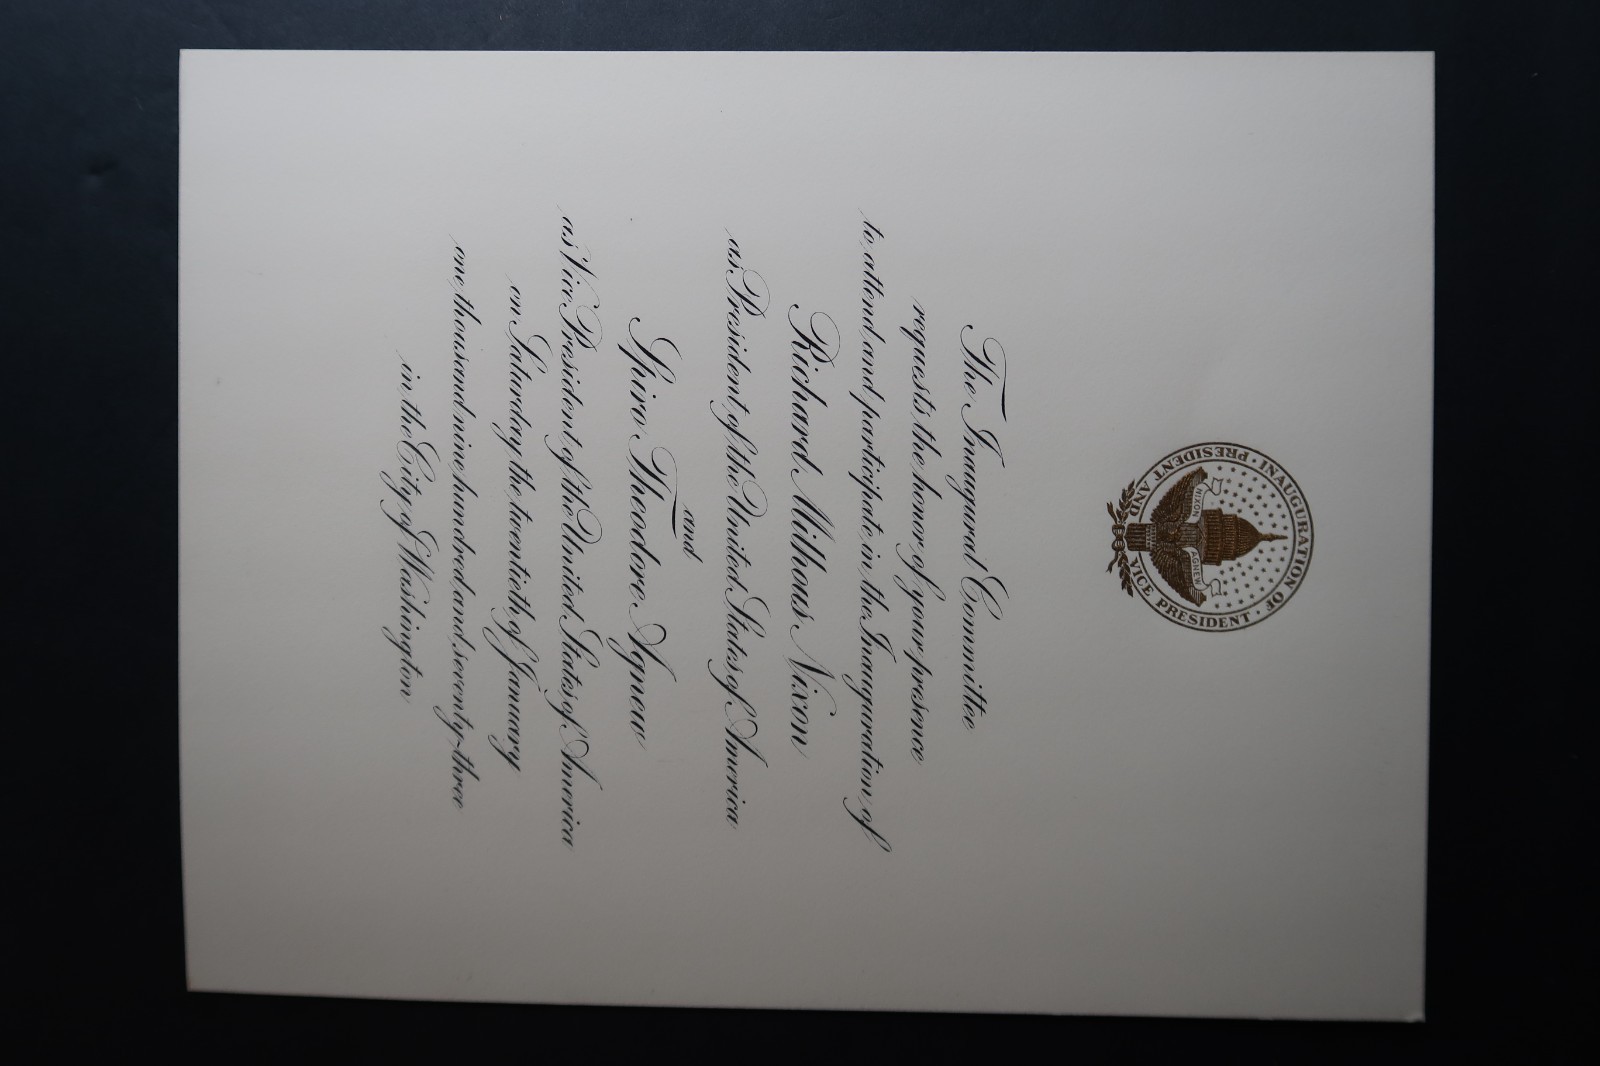 INAUGURATION OF
PRESIDENT AND
VICE PRESIDENT
NIXON
AGNEW
The Inaugural Committee
requests the honor of your presence
to attend and participate in the Inauguration of
Richard Milhous Nixon
as President of the United States of America
and
Spiro Theodore Agnew
as Vice President of the United States of America
on Saturday the twentieth of January
one thousand nine hundred and seventy-three
in the City of Washington